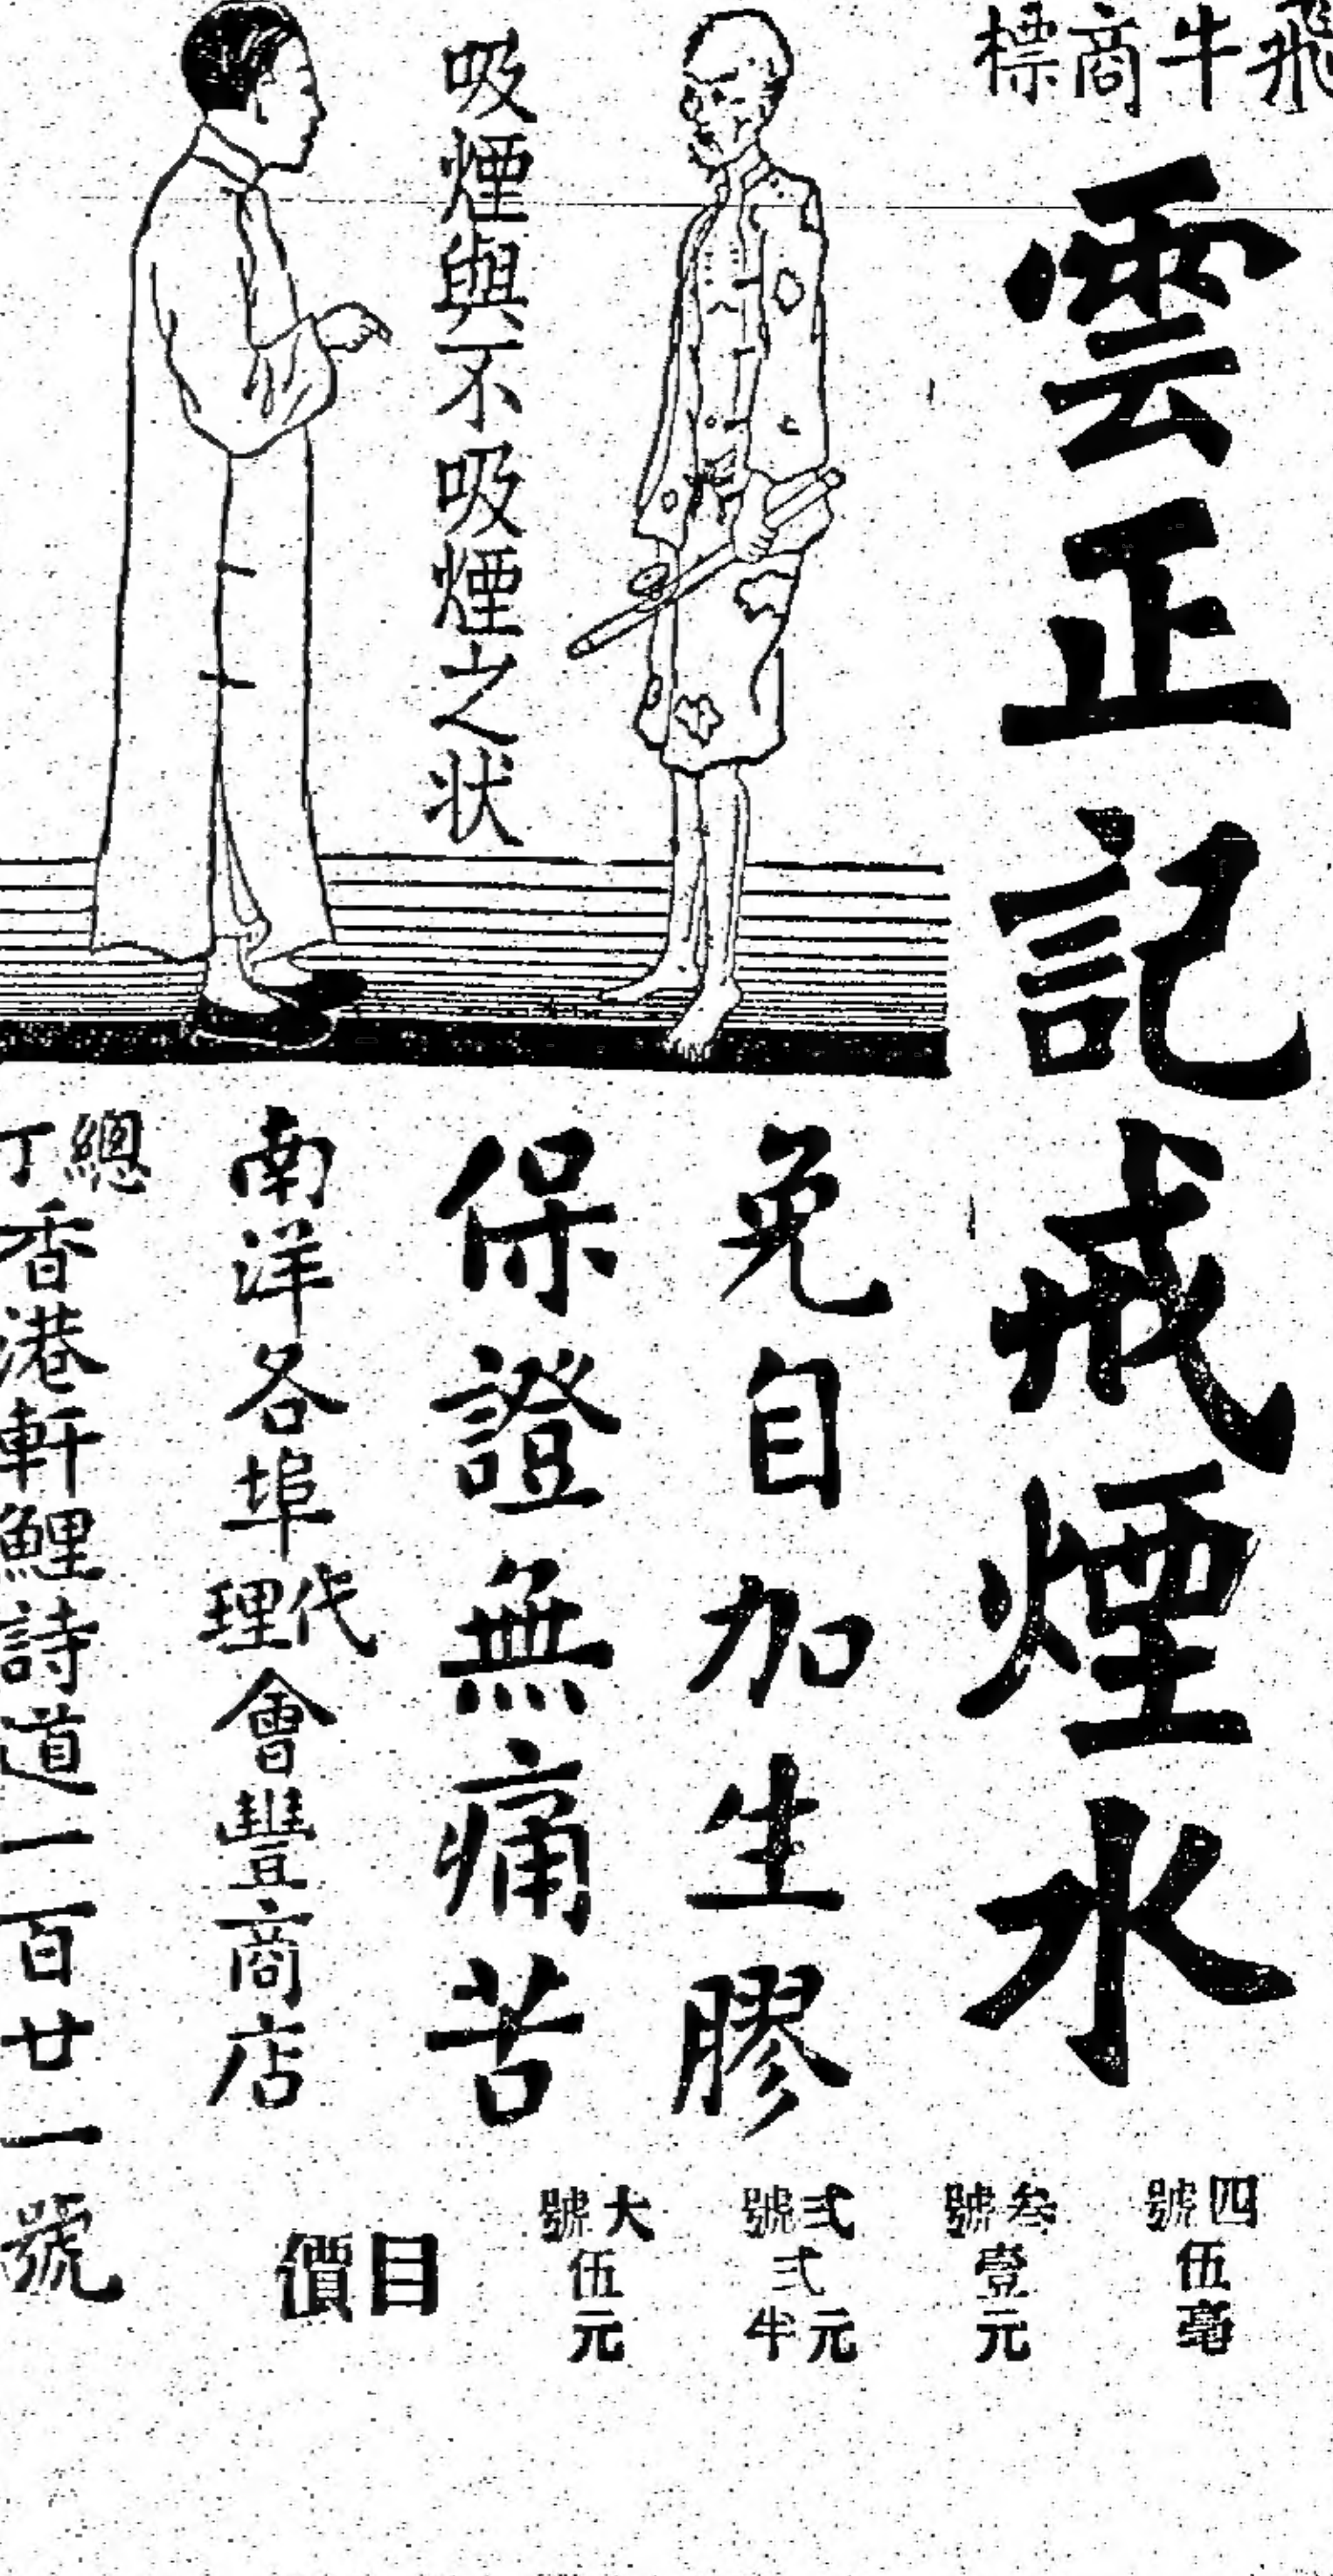 飛牛商標
雲正記戒煙水
吸煙與不吸煙之狀
免自加生膠
保證無痛苦
南洋各埠代理會豐商店
總
香港軒鯉詩道一百廿一號
四號伍毫
叁號壹元
弍號弍元半
大號伍元
價目